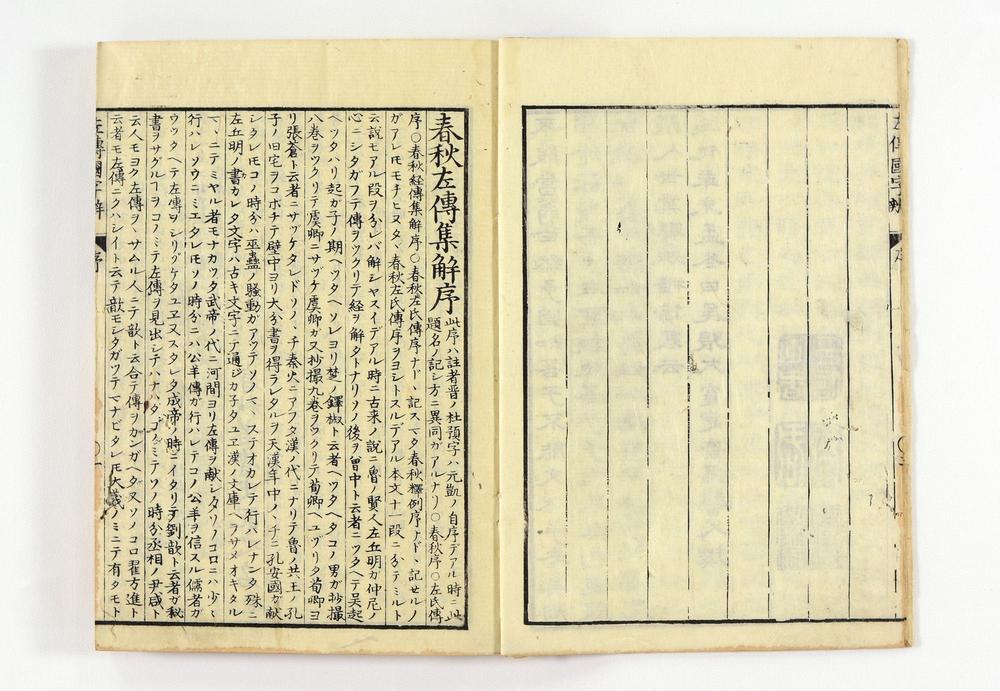 春秋左傳集解序
此序ハ註者晋ノ杜預字ハ元凱ノ自序デアル時ニ此
題名ノ記シ方ニ異同ガアルナリ〇春秋序〇左氏傳
序〇春秋経傳集解序〇春秋左氏傳序ナリト記スマタ春秋釋例序ナドト記セルノ
ガアレ𪜈モチヒヌタヾ春秋左氏傳序ヲヨシトスルデアル本文十一段ニ分テミルト
云説モアル段ヲ分レバ解シヤスイデアル時ニ古来ノ説ニ魯ノ賢人左丘明ガ仲尼ノ
心ニシタガフテ傳ヲツクリテ経ヲ解タトナリソノ後ヲ曽申ト云者ニツタヘテ吴起
ヘツタハリ起ガ子ノ期ヘツタヘソレヨリ楚ノ鐸椒ト云者ヘツタヘタコノ男ガ抄撮
八巻ヲツクリテ虞卿ニサヅケ虞卿ガ又抄撮九巻ヲツクリテ荀卿ヘユヅリタ荀卿ヨ
リ張蒼ト云者ニサヅケタレドソノヽチ秦火ニアフタ漢ノ代ニナリテ魯ノ共王ノ孔
子ノ旧宅ヲコボチテ壁中ヨリ大分書ヲ得ラレタルヲ天漢年中ノヽチニ孔安國ガ献
シタレ𪜈コノ時分ハ巫蠱ノ騒動ガアツテソノマヽステオカレテ行ハレナンタ殊ニ
左丘明ノ書カレタ文字ハ古キ文字ニテ通ジカ子タユヱ漢ノ文庫ヘヲサメオキタル
マヽニテミヤル者モナカツタ武帝ノ代ニ河間ヨリ左傳ヲ献シタソノコロニハ少シ
行ハレソウニミエタレ𪜈ソノ時分ニハ公羊傳ガ行ハレテコノ公羊ヲ信スル儒者ガ
ウツタヘテ左傳ヲシリゾケタユヱ又スタレタ成帝ノ時ニイタリテ劉歆ト云者ガ秘
書ヲサグルヿヲコノミテ左傳ヲ見出シテハナハダコノミテソノ時分丞相ノ尹咸ト
云人モヨク左傳ヲヽサムル人ニテ歆ト云合テ傳ヲカンガヘタ又ソノコロ翟方進ト
云者モ左傳ニクハシイト云テ歆モシタガツテマナビタレ𪜈大義ノミニテ有タモト
左傳國字辨
序
左傳國字辨
序